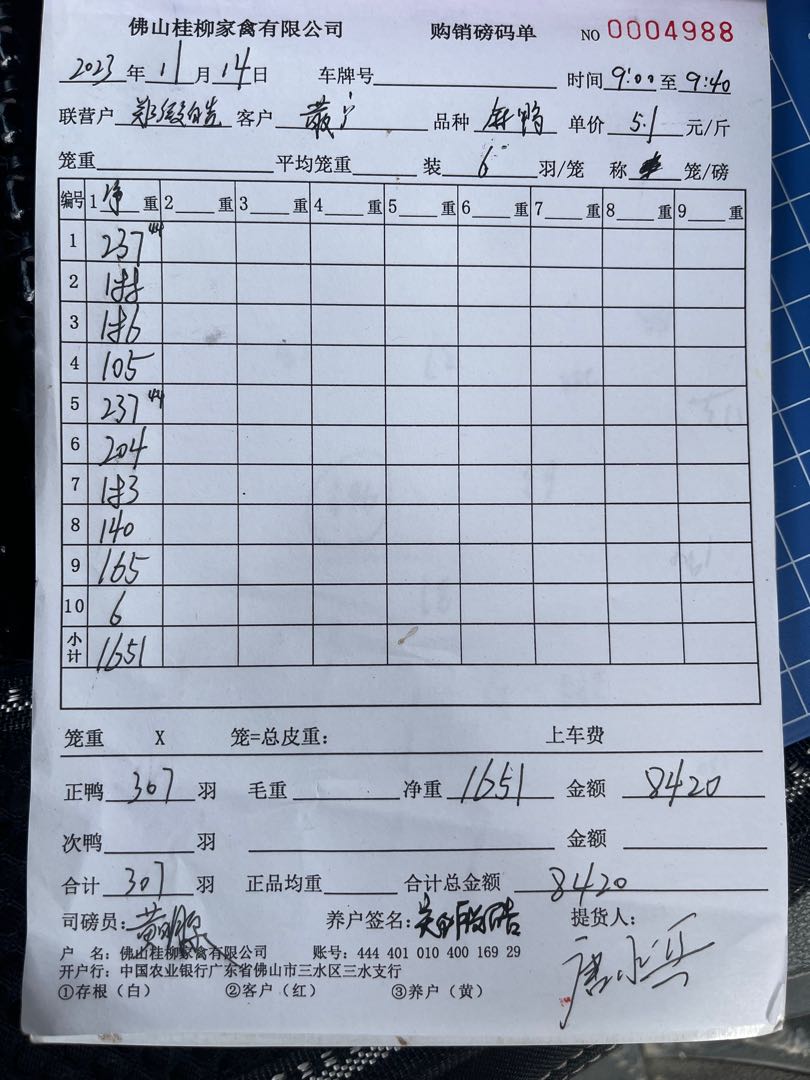 佛山桂柳家禽有限公司 购销磅码单 NO 0004988
2023年11月14日 车牌号 时间9:00至9:40
联营户 客户 散户 品种 麻鸭 单价 5.1 元/斤
笼重 平均笼重 装 6 羽/笼 称 笼/磅
编号 1净重 2 重 3 重 4 重 5 重 6 重 7 重 8 重 9 重
1 237 44
2
3
4 105
5 237 44
6 204
7
8 140
9 165
10 6
小计 1651
笼重 X 笼=总皮重: 上车费
正鸭 307 羽 毛重 净重 1651 金额 8420
次鸭 羽 金额
合计 307 羽 正品均重 合计总金额 8420
司磅员: 养户签名: 提货人:
户 名: 佛山桂柳家禽有限公司 账号: 444 401 010 400 169 29
开户行: 中国农业银行广东省佛山市三水区三水支行
①存根(白) ②客户(红) ③养户(黄)